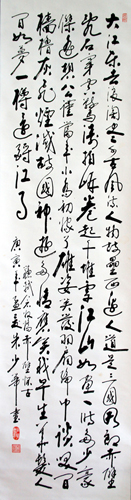 大江东去浪淘尽千古风流人物故垒西边人道是三国周郎赤壁
乱石穿空惊涛拍岸卷起千堆雪江山如画一时多少豪
杰遥想公瑾当年小乔初嫁了雄姿英发羽扇纶巾谈笑间
樯橹灰飞烟灭故国神游多情应笑我早生华发人
间如梦一樽还酹江月